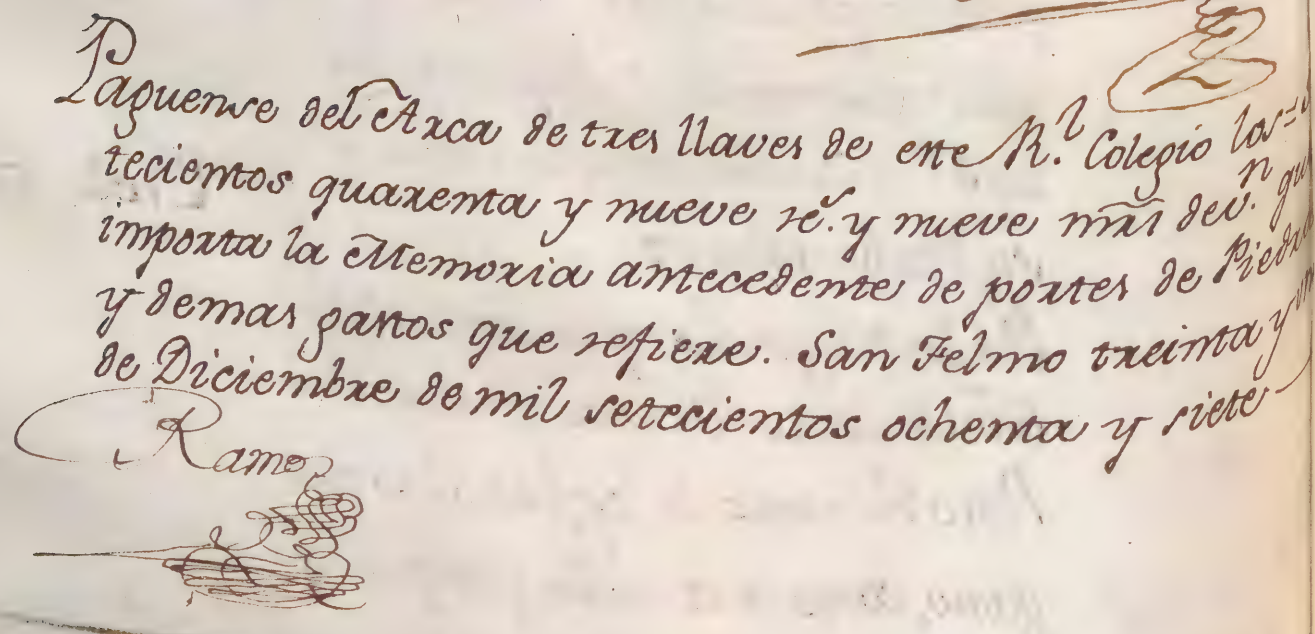 Paguense del Arca de tres llaves de este R.l Colegio los
tecientos quarenta y nueve rs. y nueve mrs de v.n que
importa la Memoria antecedente de portes de Piedra
y demas gastos que refiere. San Telmo treinta y un
de Diciembre de mil setecientos ochenta y siete
Ramos